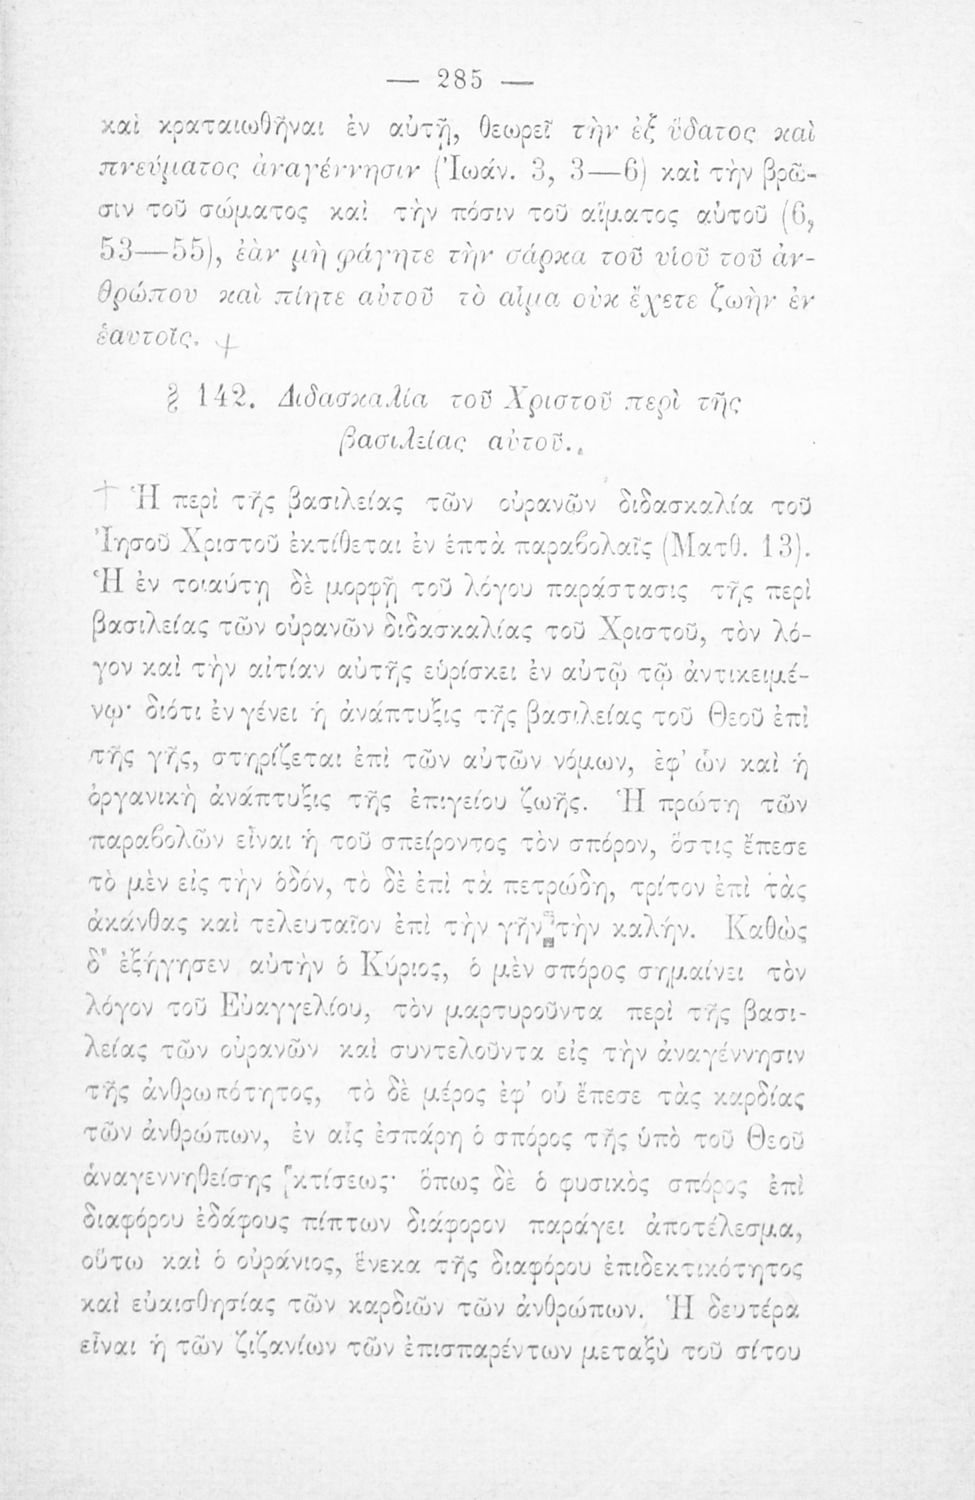 — 285 —
καὶ κραταιωθῆναι ἐν αὐτῇ, θεωρεῖ τὴν ἐξ ὕδατος καὶ
πνεύματος ἀναγέννησιν (Ἰωάν. 3, 3—6) καὶ τὴν βρῶ-
σιν τοῦ σώματος καὶ τὴν πόσιν τοῦ αἵματος αὐτοῦ (6,
53—55), ἐὰν μὴ φάγητε τὴν σάρκα τοῦ υἱοῦ τοῦ ἀν-
θρώπου καὶ πίητε αὐτοῦ τὸ αἷμα οὐκ ἔχετε ζωὴν ἐν
ἑαυτοῖς.
§ 142. Διδασκαλία τοῦ Χριστοῦ περὶ τῆς
βασιλείας αὐτοῦ.
† Ἡ περὶ τῆς βασιλείας τῶν οὐρανῶν διδασκαλία τοῦ
Ἰησοῦ Χριστοῦ ἐκτίθεται ἐν ἑπτὰ παραβολαῖς (Ματθ. 13).
Ἡ ἐν τοιαύτῃ δὲ μορφῇ τοῦ λόγου παράστασις τῆς περὶ
βασιλείας τῶν οὐρανῶν διδασκαλίας τοῦ Χριστοῦ, τὸν λό-
γον καὶ τὴν αἰτίαν αὐτῆς εὑρίσκει ἐν αὐτῷ τῷ ἀντικειμέ-
νῳ· διότι ἐν γένει ἡ ἀνάπτυξις τῆς βασιλείας τοῦ Θεοῦ ἐπὶ
τῆς γῆς, στηρίζεται ἐπὶ τῶν αὐτῶν νόμων, ἐφ' ὧν καὶ ἡ
ὀργανικὴ ἀνάπτυξις τῆς ἐπιγείου ζωῆς. Ἡ πρώτη τῶν
παραβολῶν εἶναι ἡ τοῦ σπείροντος τὸν σπόρον, ὅστις ἔπεσε
τὸ μὲν εἰς τὴν ὁδόν, τὸ δὲ ἐπὶ τὰ πετρώδη, τρίτον ἐπὶ τὰς
ἀκάνθας καὶ τελευταῖον ἐπὶ τὴν γῆν τὴν καλήν. Καθὼς
δ' ἐξήγησεν αὐτὴν ὁ Κύριος, ὁ μὲν σπόρος σημαίνει τὸν
λόγον τοῦ Εὐαγγελίου, τὸν μαρτυροῦντα περὶ τῆς βασι-
λείας τῶν οὐρανῶν καὶ συντελοῦντα εἰς τὴν ἀναγέννησιν
τῆς ἀνθρωπότητος, τὸ δὲ μέρος ἐφ' οὗ ἔπεσε τὰς καρδίας
τῶν ἀνθρώπων, ἐν αἷς ἐσπάρη ὁ σπόρος τῆς ὑπὸ τοῦ Θεοῦ
ἀναγεννηθείσης κτίσεως· ὅπως δὲ ὁ φυσικὸς σπόρος ἐπὶ
διαφόρου ἐδάφους πίπτων διάφορον παράγει ἀποτέλεσμα,
οὕτω καὶ ὁ οὐράνιος, ἕνεκα τῆς διαφόρου ἐπιδεκτικότητος
καὶ εὐαισθησίας τῶν καρδιῶν τῶν ἀνθρώπων. Ἡ δευτέρα
εἶναι ἡ τῶν ζιζανίων τῶν ἐπισπαρέντων μεταξὺ τοῦ σίτου